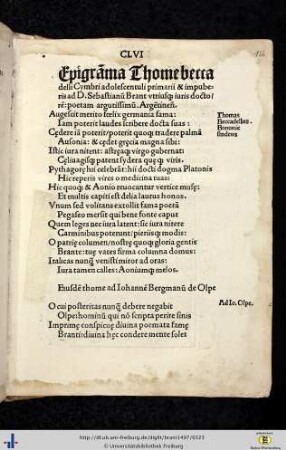 CLVI
Epigrāma Thome becca
delli Cymbri adolescentuli primarii & impube
ris ad D. Sebastianū Brant vtriusq̃ iuris docto
rē: poetam argutissimū. Argētineñ.
Augescit merito fœlix germania fama:
Thomas
Beccadellus.
Bononie
studens
Iam poterit laudes scribere docta suas:
Cędere iā poterit/poterit quoq̃ tradere palmā
Ausonia: & cędet gręcia magna sibi:
Istic iura nitent: astręaq̃ virgo gubernat:
Cęliaq̃ patent sydera quęq̃ viris.
Pythagorę hii celebrāt: hii docti dogma Platonis
Hic reperis vires o medicina tuas:
Hic quoq̃ & Aonio reuocantur vertice musę:
Et multis capiti est delia laurus honos.
Vnum sed volitans extollit fama poetā
Pegaseo mersit qui bene fonte caput
Quem leges nec iura latent: sic iura nitere
Carminibus poterunt: pieriisq̃ modis:
O patrię columen/nostręq̃ quoq̃ gloria gentis
Brante: tuę vates firma columna domus:
Italicas nunq̃ venistī miror ad oras:
Iura tamen calles: Aoniamq̃ melos.
Eiusdē thome ad Iohannē Bergmanū de Olpe
Ad Io. Olpe.
O cui posteritas nunq̃ debere negabit
Olpe: hominū qui nō scripta perire sinis
Imprime conspicoq̃ diuina poemata famę
Branti: diuina hęc condere mente solet
http://dl.ub.uni-freiburg.de/diglit/brant1497/0323
© Universitätsbibliothek Freiburg